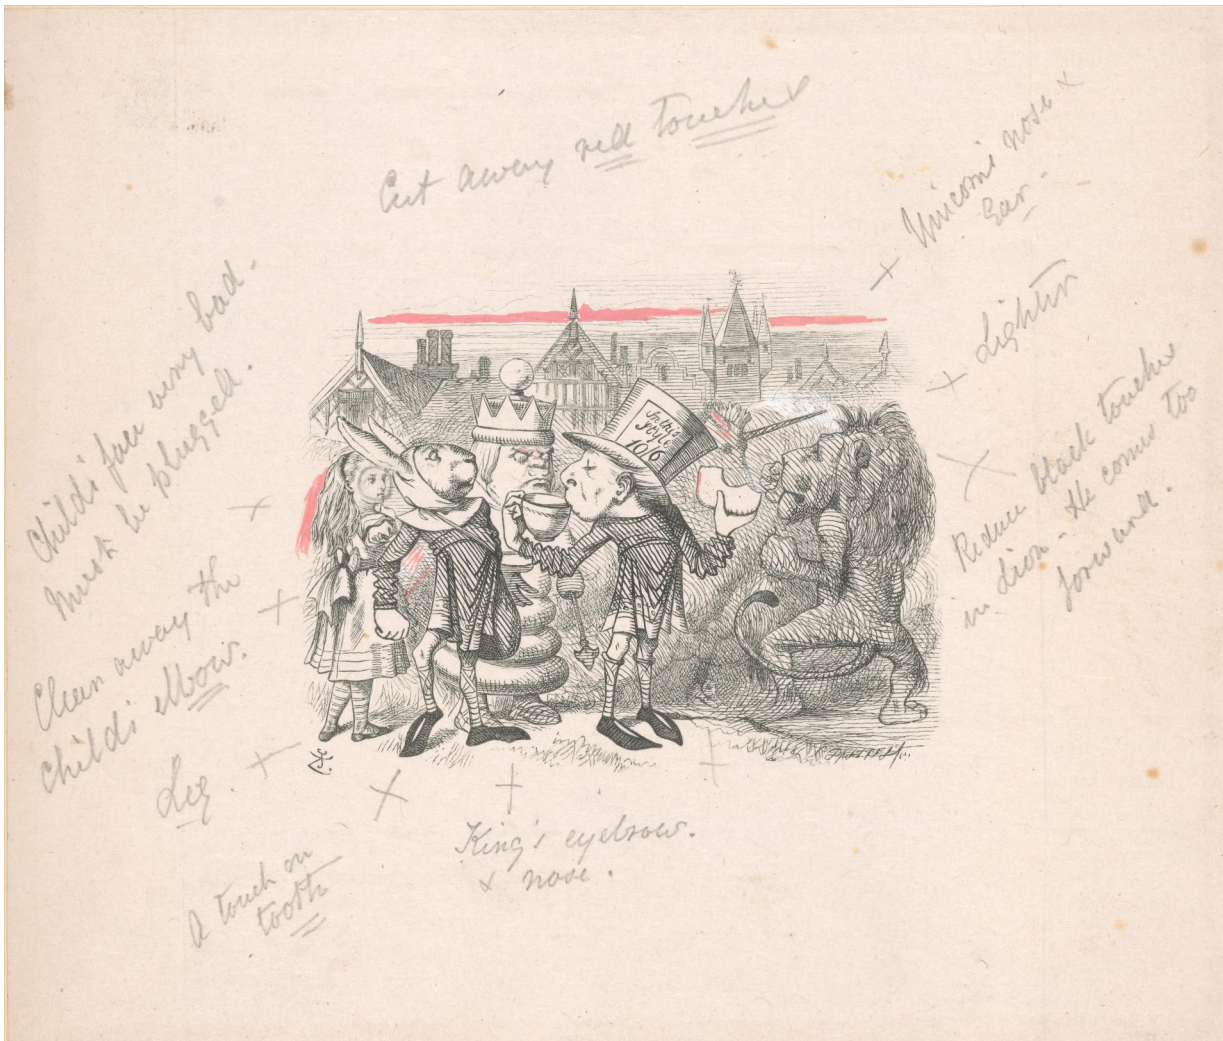 Cut away red touches
Unicorn's nose &
Ear.
Lighter
Reduce black touches
in Lion - He comes too
forward.
Child's face very bad.
Must be plugged.
Clean away the
child's elbow.
Leg.
A touch on
tooth
King's eyebrow.
& nose.
In this
Style
10/6
DALZIEL